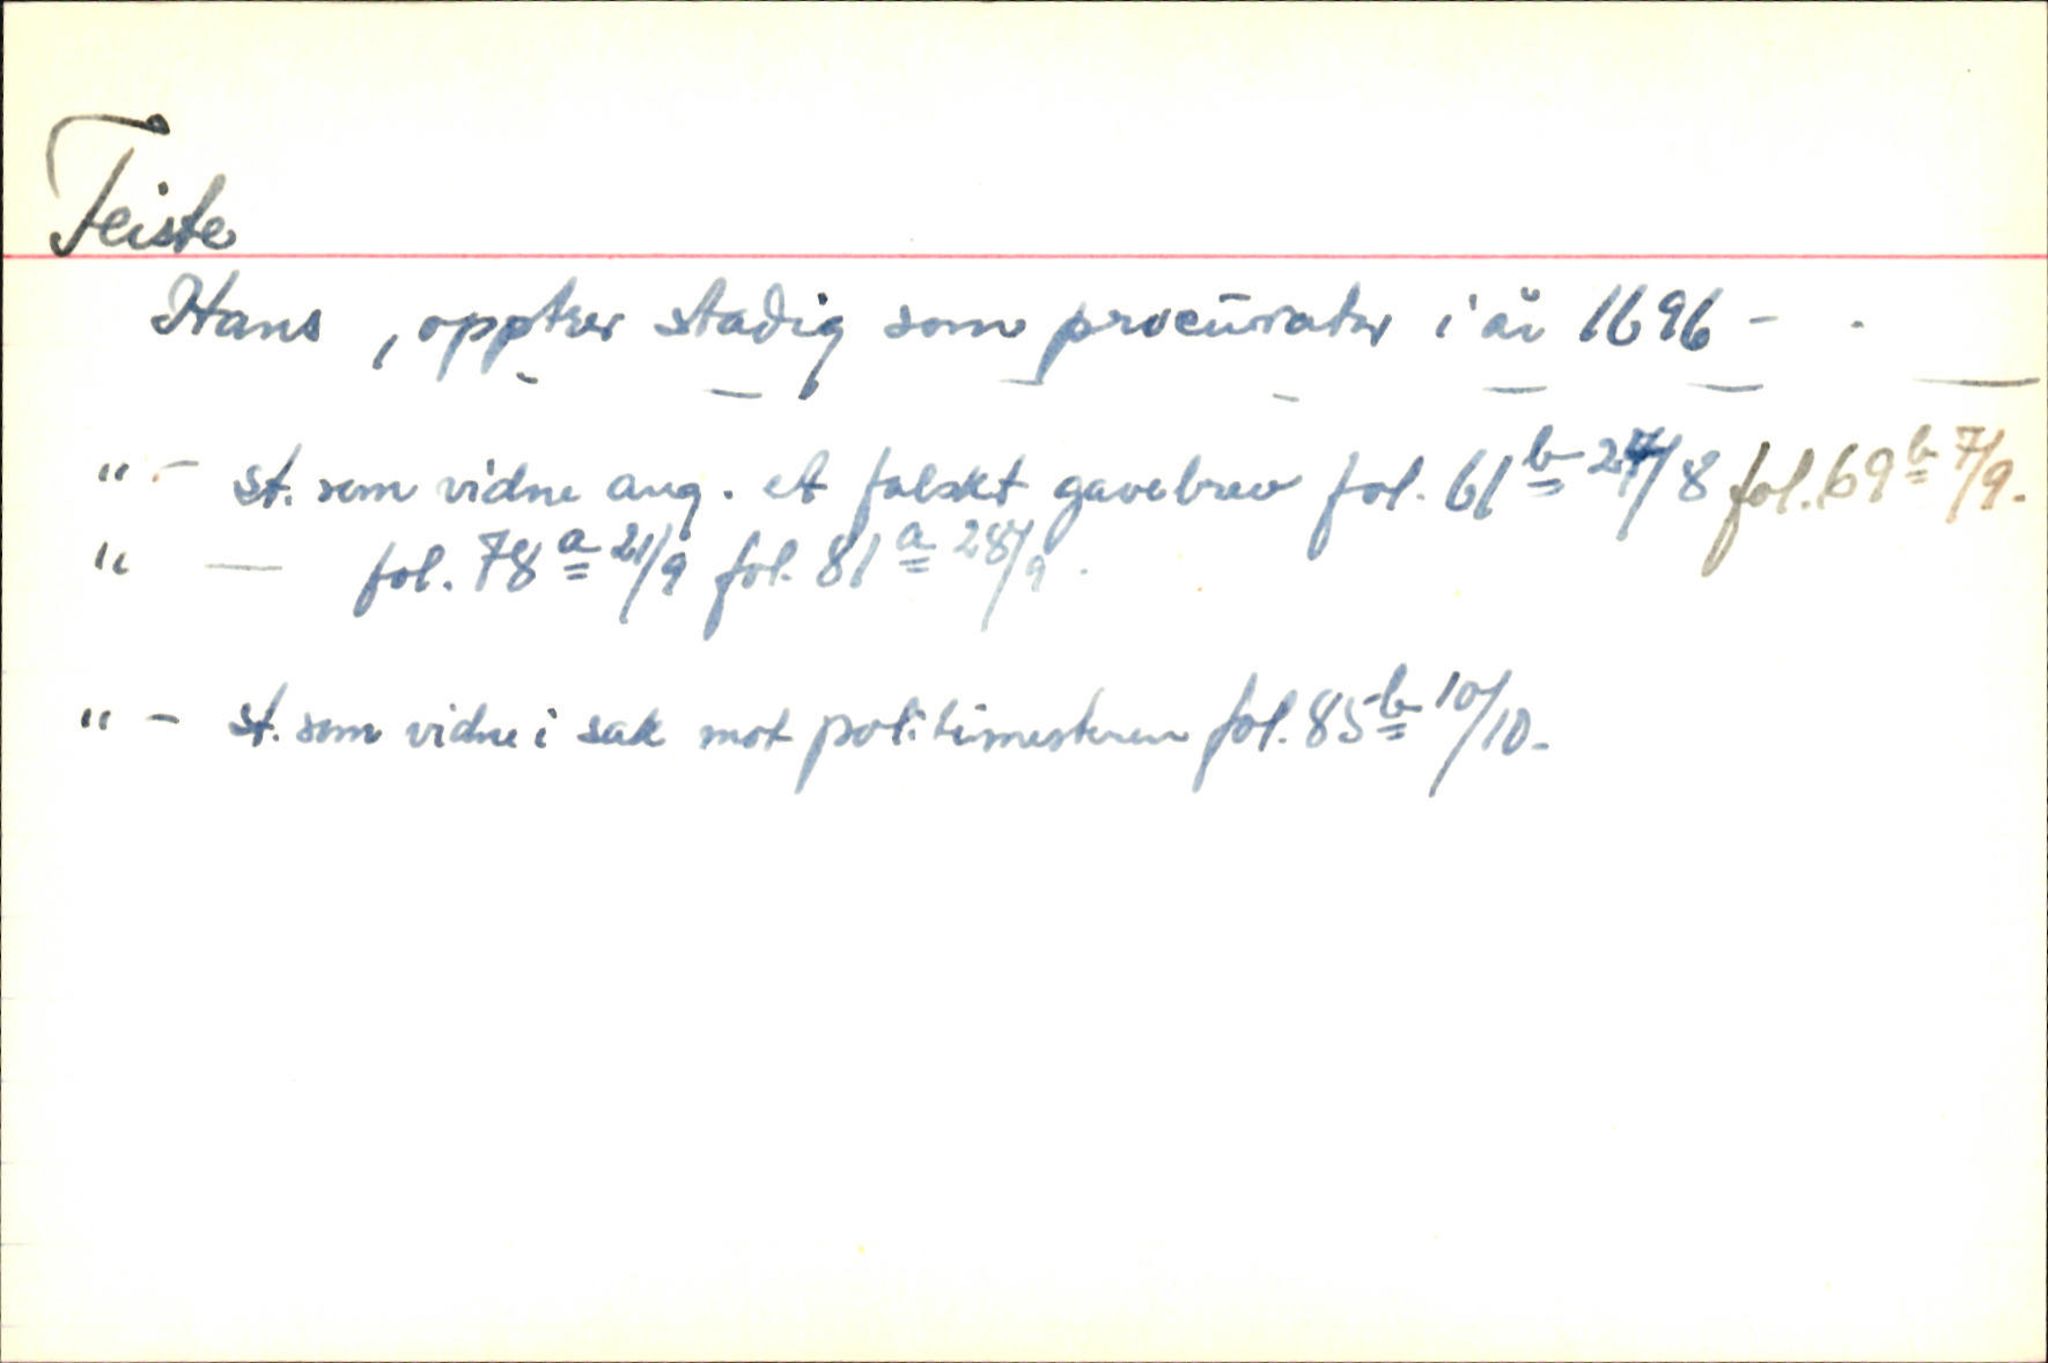 Feiste
Hans , opptrer stadig som procūrator i år 1696 - .
" - st. som vidne ang. et falskt gavebrev fol. 61 b 27/8 fol. 69 b 7/9.
" — fol. 78 a 21/9 fol. 81 a 28/9.
" - st. som vidne i sak mot politimesteren fol. 85 b 10/10.